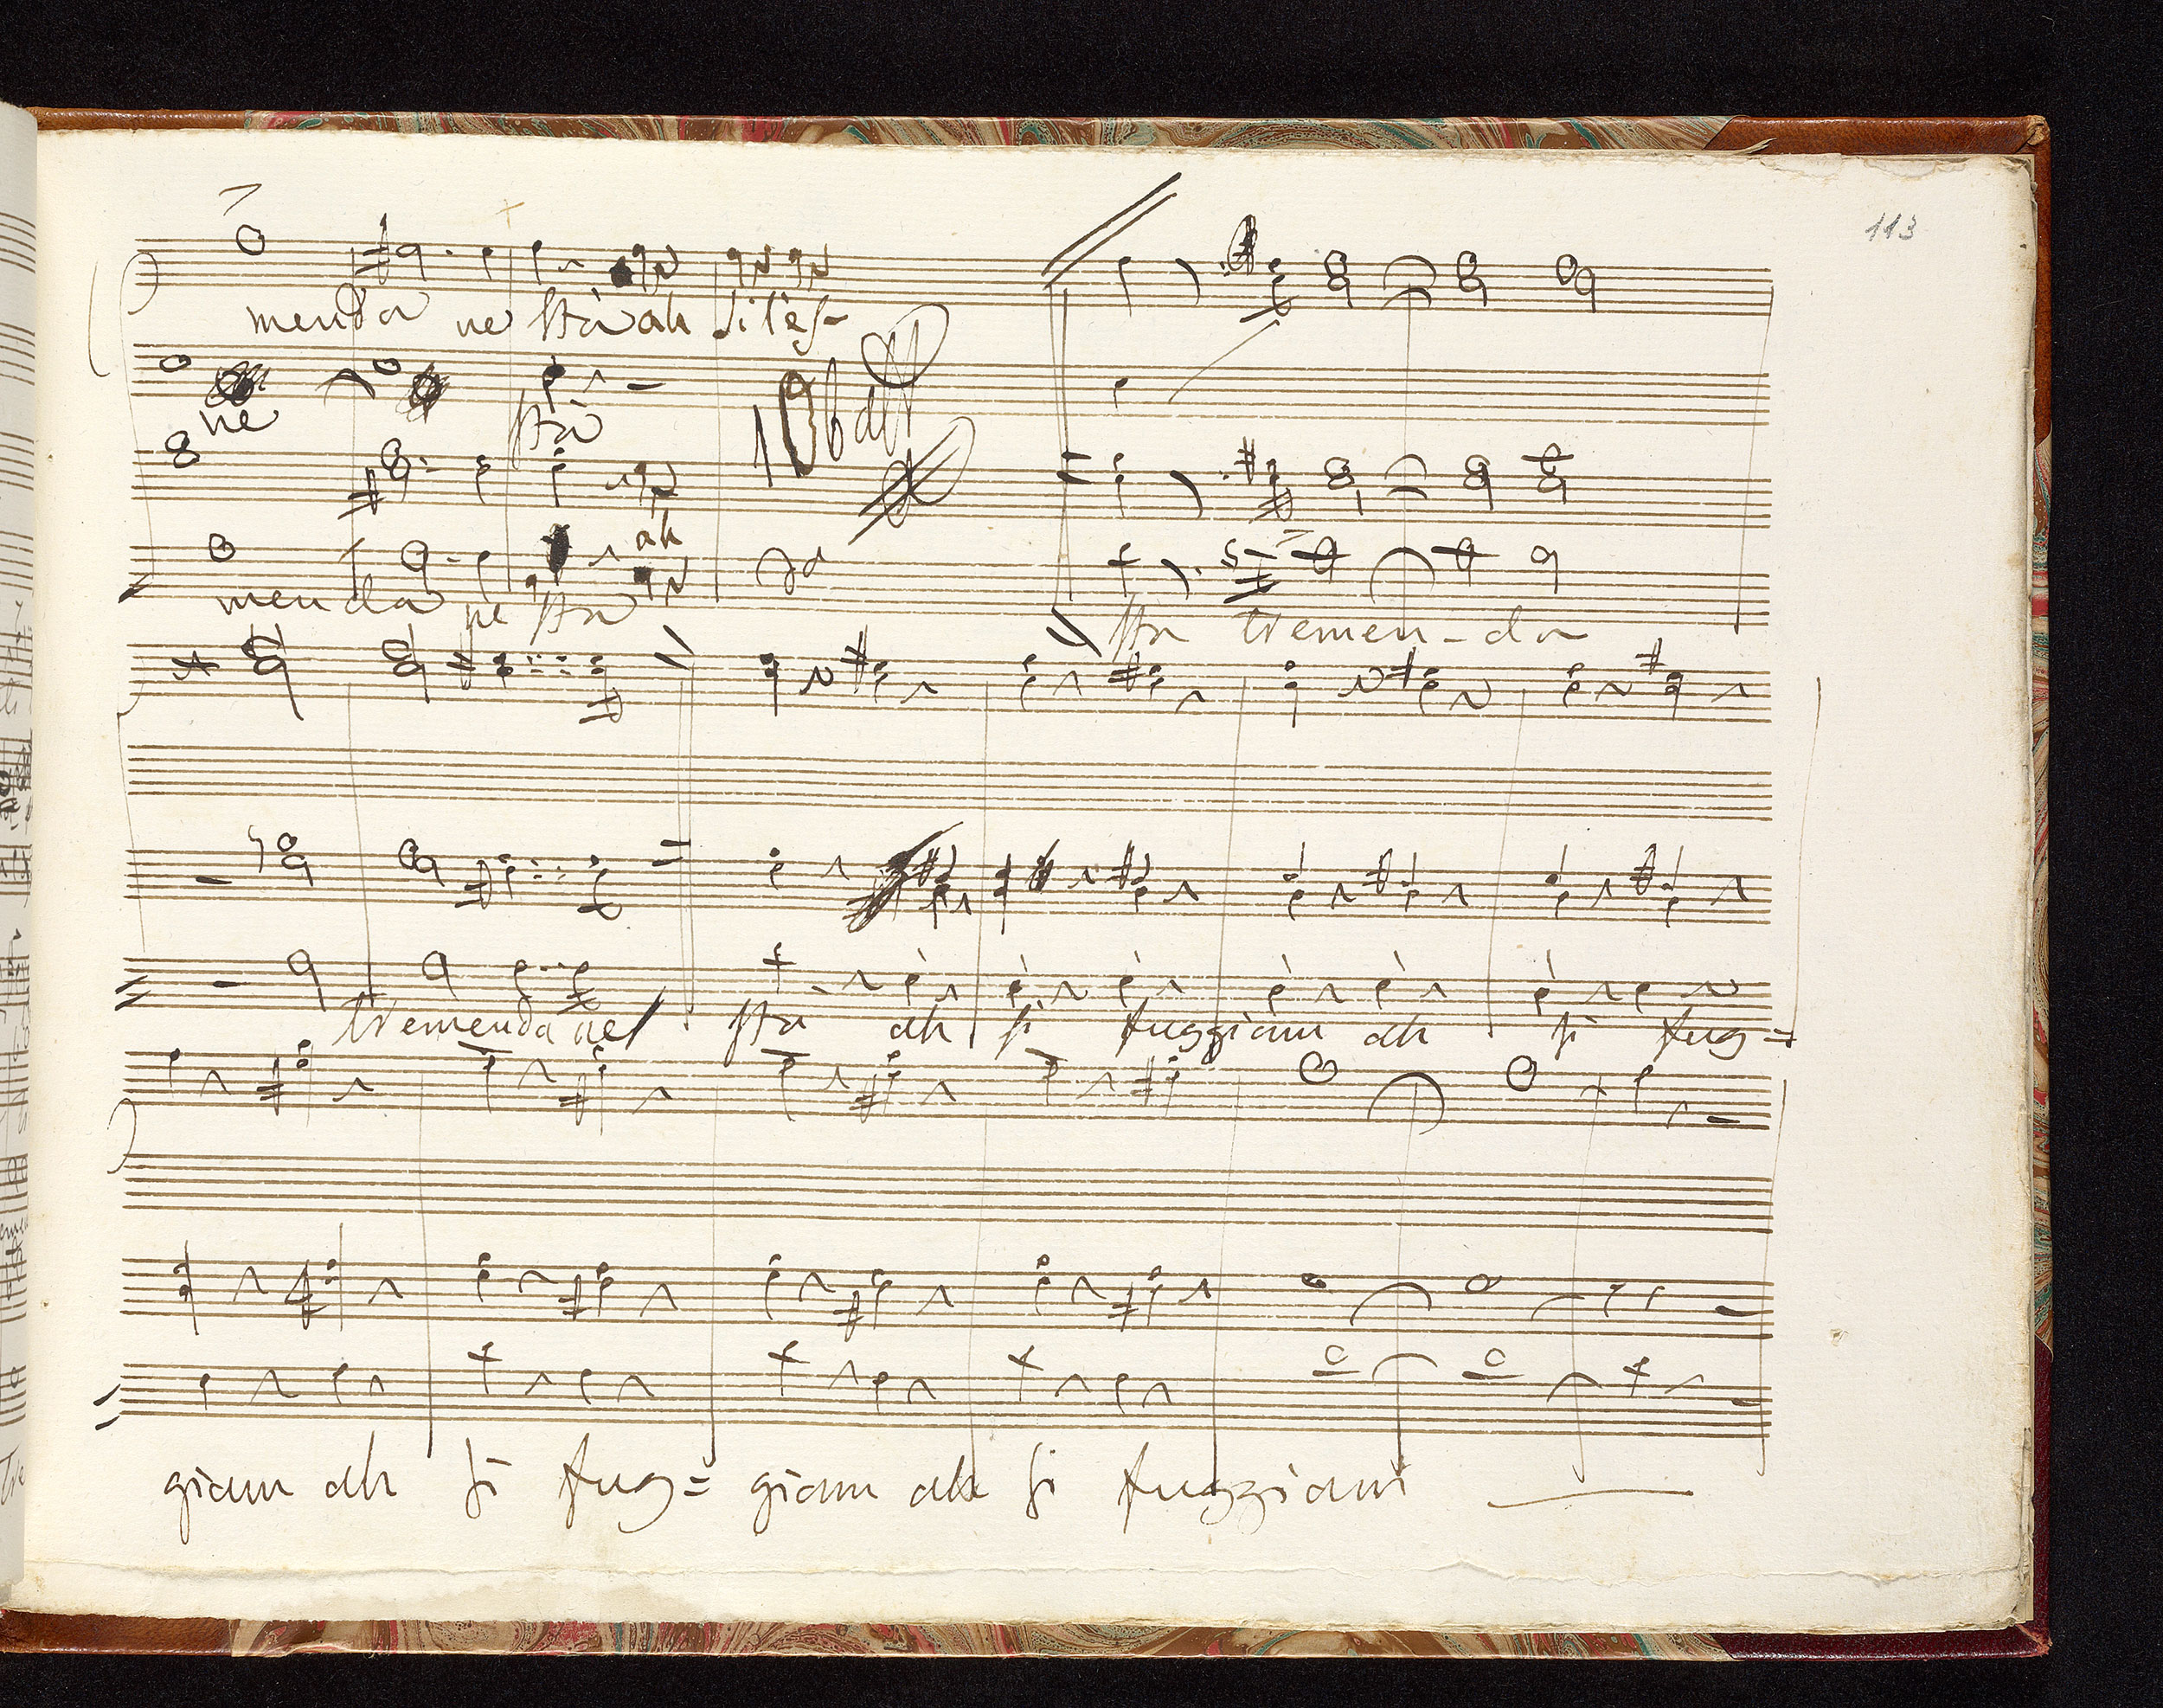 113
menda ne stà ah
ne stà
ah
menda ne sta
sta tremen-da
tremenda ne sta ah si fuggiam ah si fug=
giam ah si fug= giam ah si fuggiam